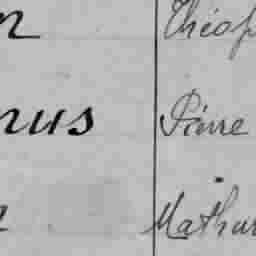 n Théop
nus Pierre
n Mathur